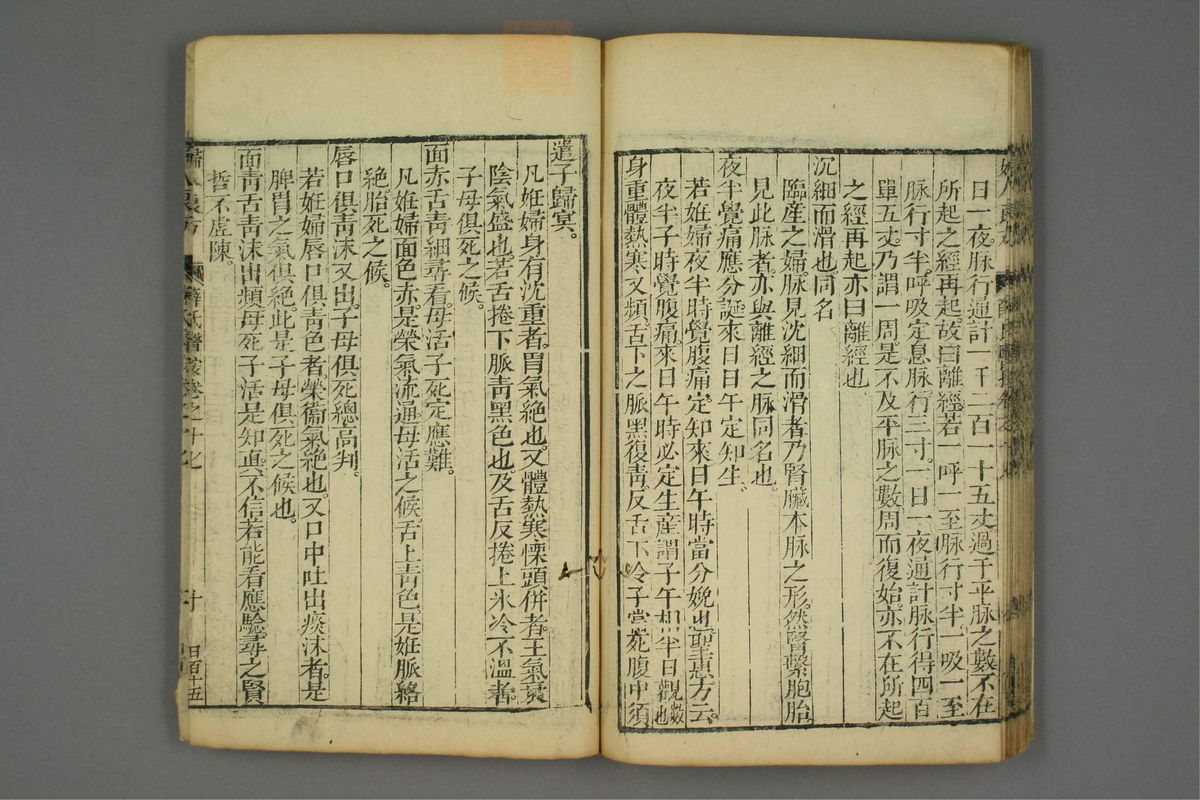 日一夜脉行通計一千二百一十五丈過于平脉之數不在
所起之經再起故曰離經若一呼一至脉行寸半一吸一至
脉行寸半呼吸定息脉行三寸一日一夜通計脉行得四百
單五丈乃謂一周是不及平脉之數周而復始亦不在所起
之經再起亦曰離經也
沉細而滑也同名
臨産之婦脉見沈細而滑者乃腎臟本脉之形然腎繫胞胎
見此脉者亦與離經之脉同名也
夜半覺痛應分誕來日日午定知生
若妊婦夜半時覺腹痛定知來日午時當分娩也聖惠方云
夜半子時覺腹痛來日午時必定生産謂子午相半日觀數也
身重體熱寒又頻舌下之脈黑復青反舌下冷子當死腹中須
遣子歸冥
凡妊婦身有沈重者胃氣絶也又體熱寒慄頭併者王氣衰
陰氣盛也若舌捲下脈青黑色也及舌反捲上氷冷不溫者
子母俱死之候
面赤舌青細尋看母活子死定應難
凡妊婦面色赤是榮氣流通母活之候舌上青色是妊脈絡
絶胎死之候
唇口俱青沫又出子母俱死總高判
若妊婦唇口俱青色者榮衞氣絶也又口中吐出痰沫者是
脾胃之氣俱絶此是子母俱死之候也
面青舌青沫出頻母死子活是知眞不信若能看應驗尋之賢
哲不虛陳